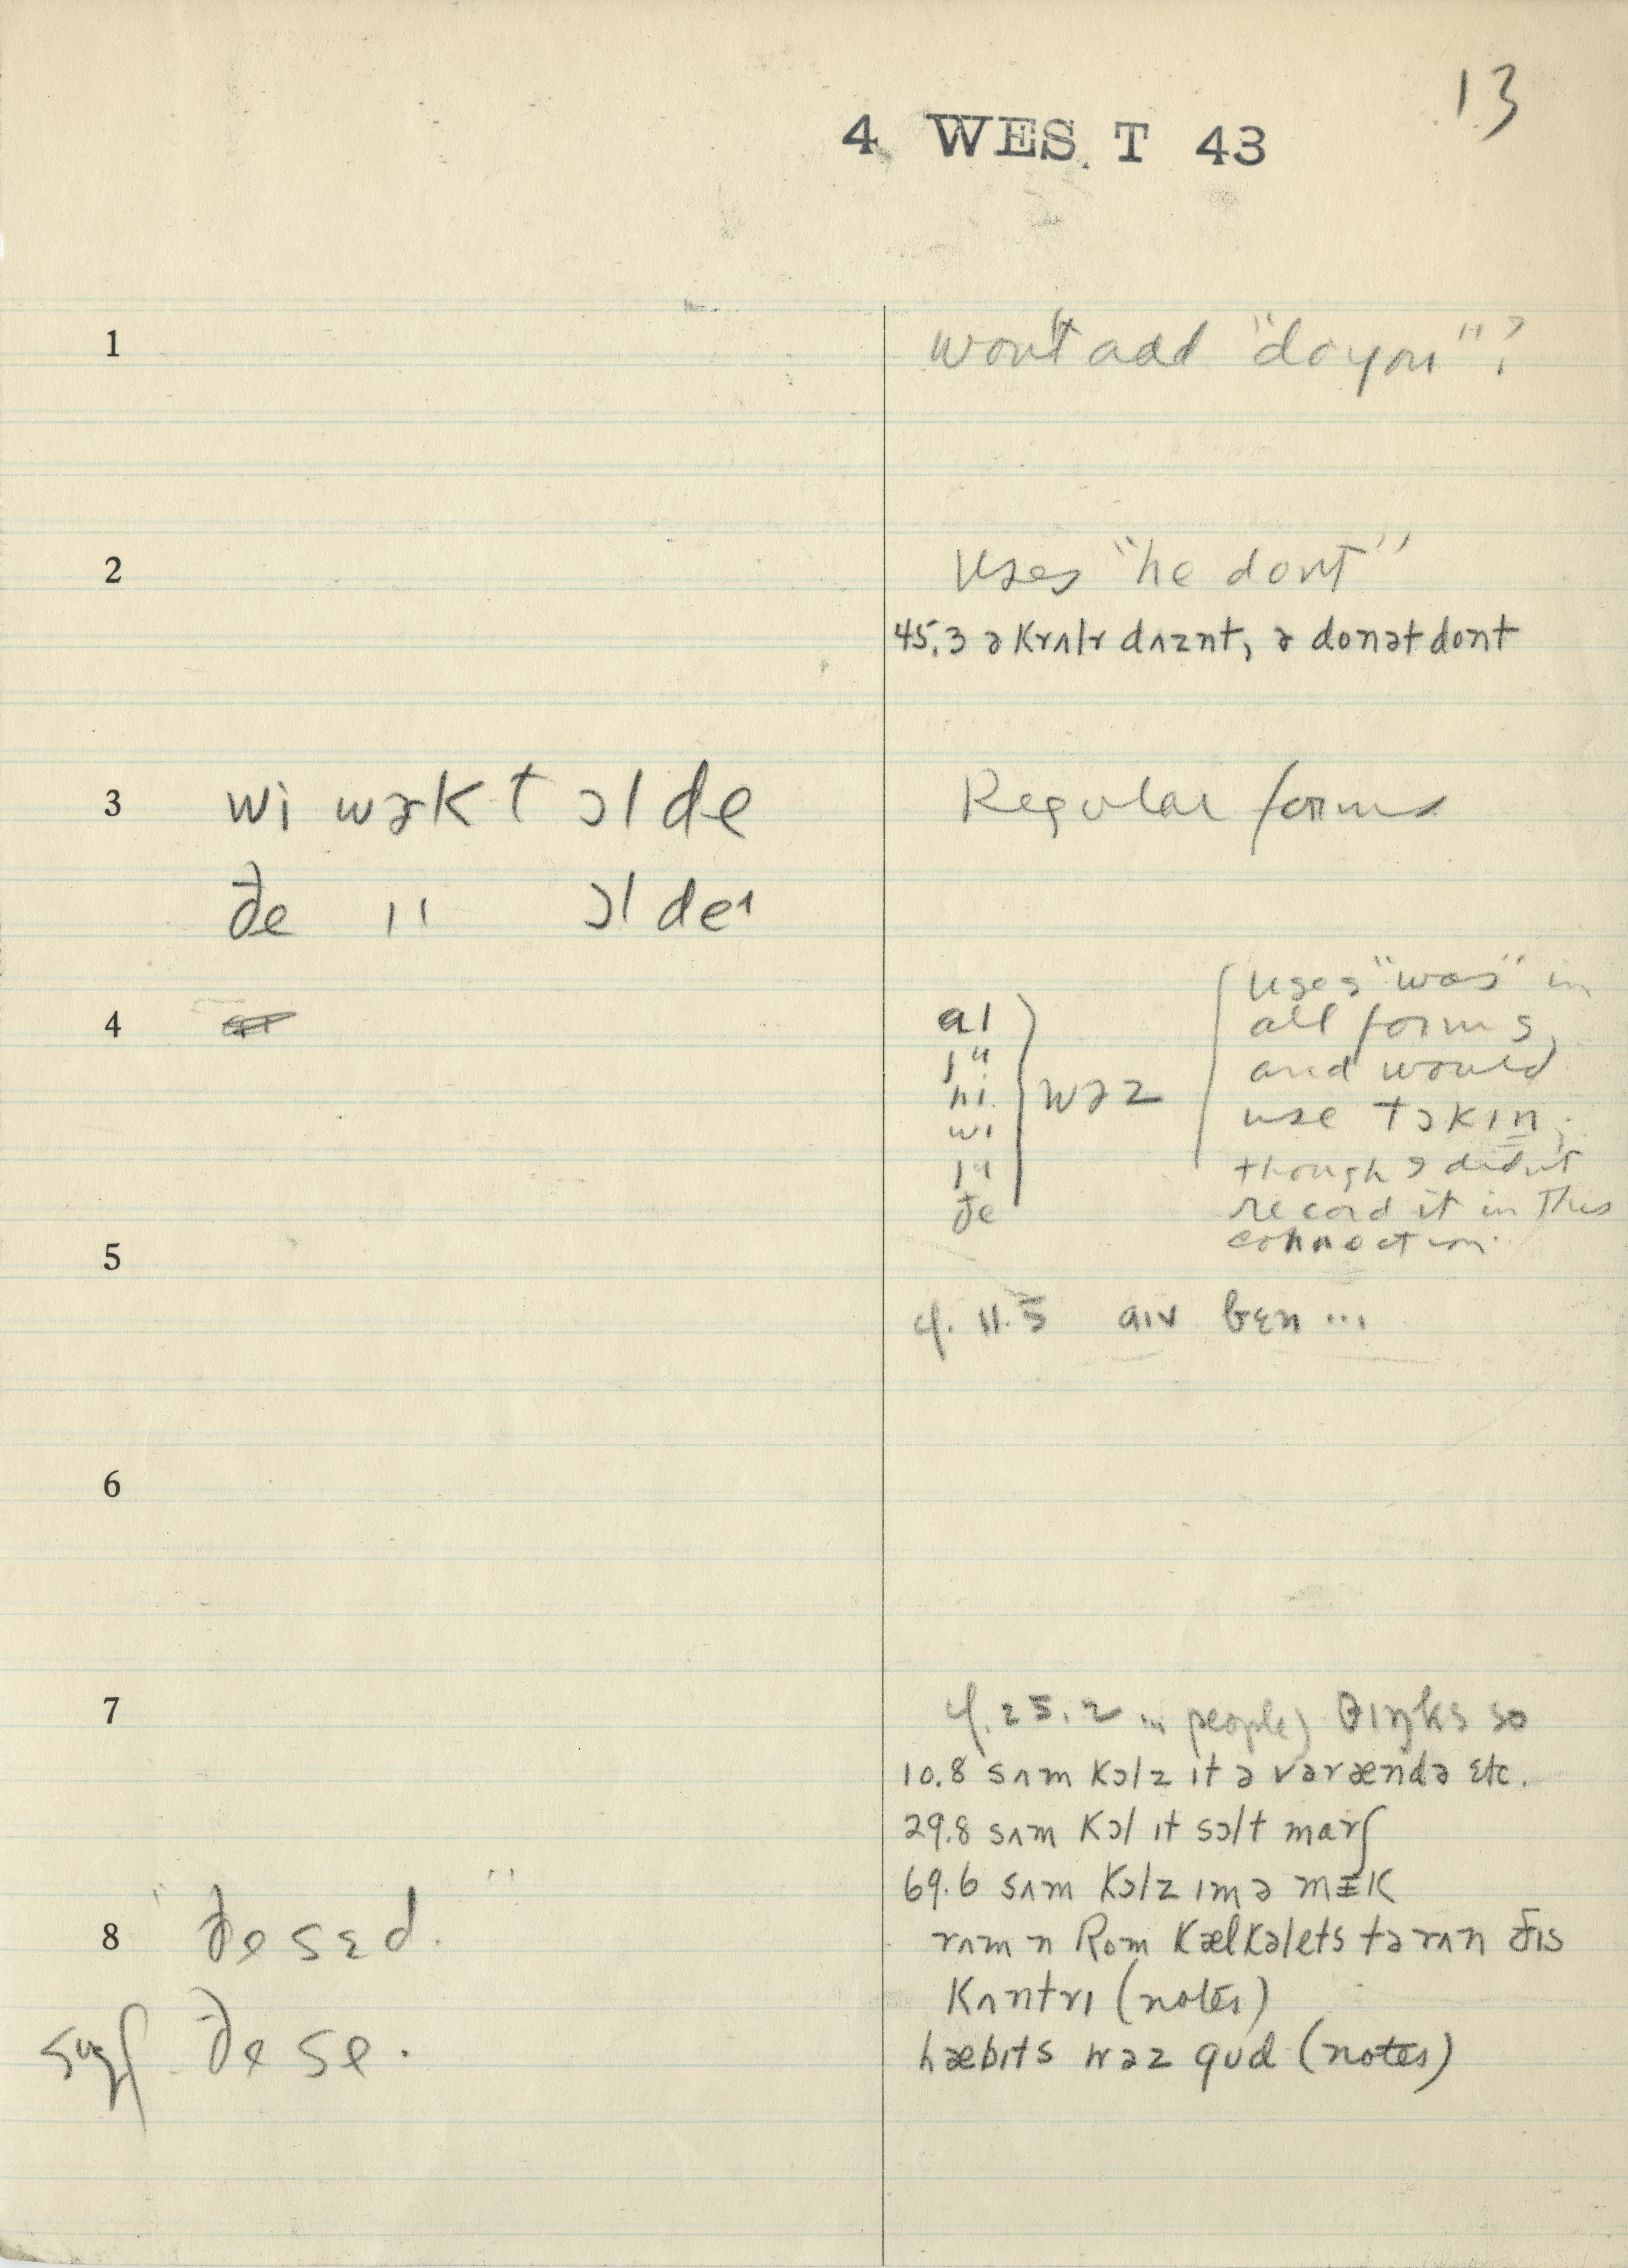 13
4 WEST 43
1 wont add "do you"?
2 Uses "he dont"
45.3 ə krʌlr dʌznt, ə donət dont
3 wi wɚkt ɔl de Regular forms
ðe " ɔl de
4
aɪ
ju
hi
wi
ju
ðe
wəz
Uses "was" in
all forms,
and would
use tɔkɪn,
though I didn't
record it in this
connection.
5
cf. 11.5 aɪv bɛn ...
6
7 cf. 25.2 ... (people) θɪŋks so
10.8 sʌm kɔlz ɪt ə vərændə etc.
29.8 sʌm kɔl ɪt sɔlt marʃ
69.6 sʌm kɔlz ɪm ə mɪk
8 "ðe sɛd."
rʌm n Rom kælkəlets tə rʌn ðɪs
kʌntrɪ (notes)
sugg ðe se.
hæbɪts wəz gud (notes)